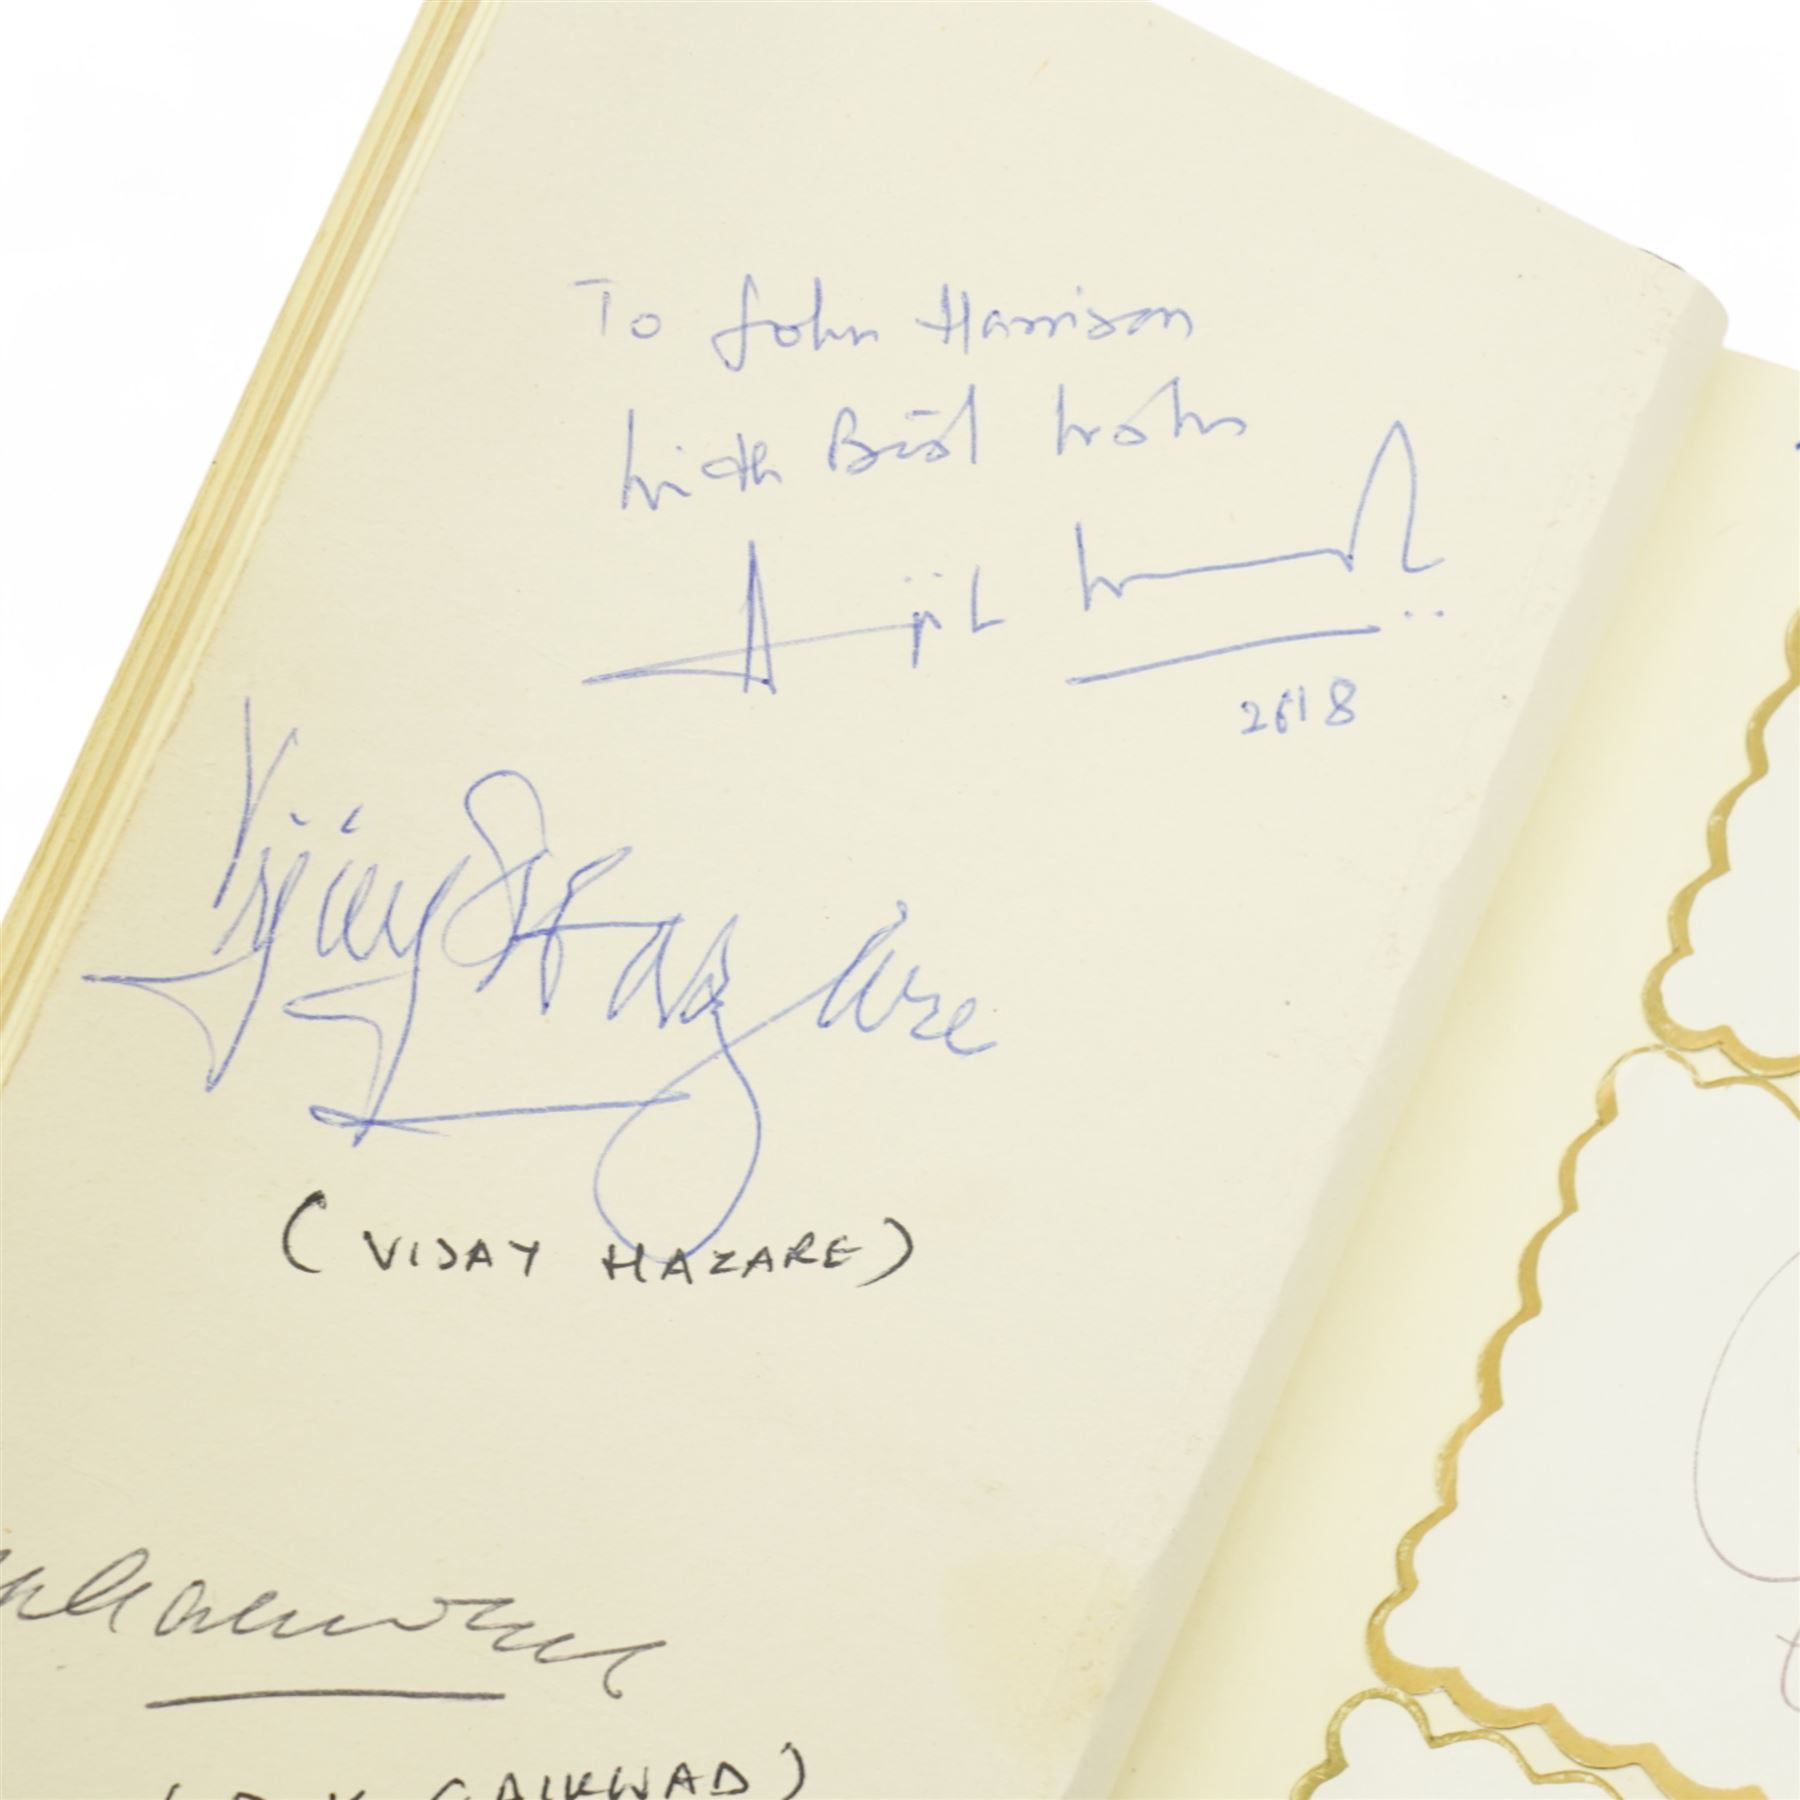 To John Harrison
with Best wishes
Ajit
Vijay S Hazare
(VIJAY HAZARE)
GAIKWAD)